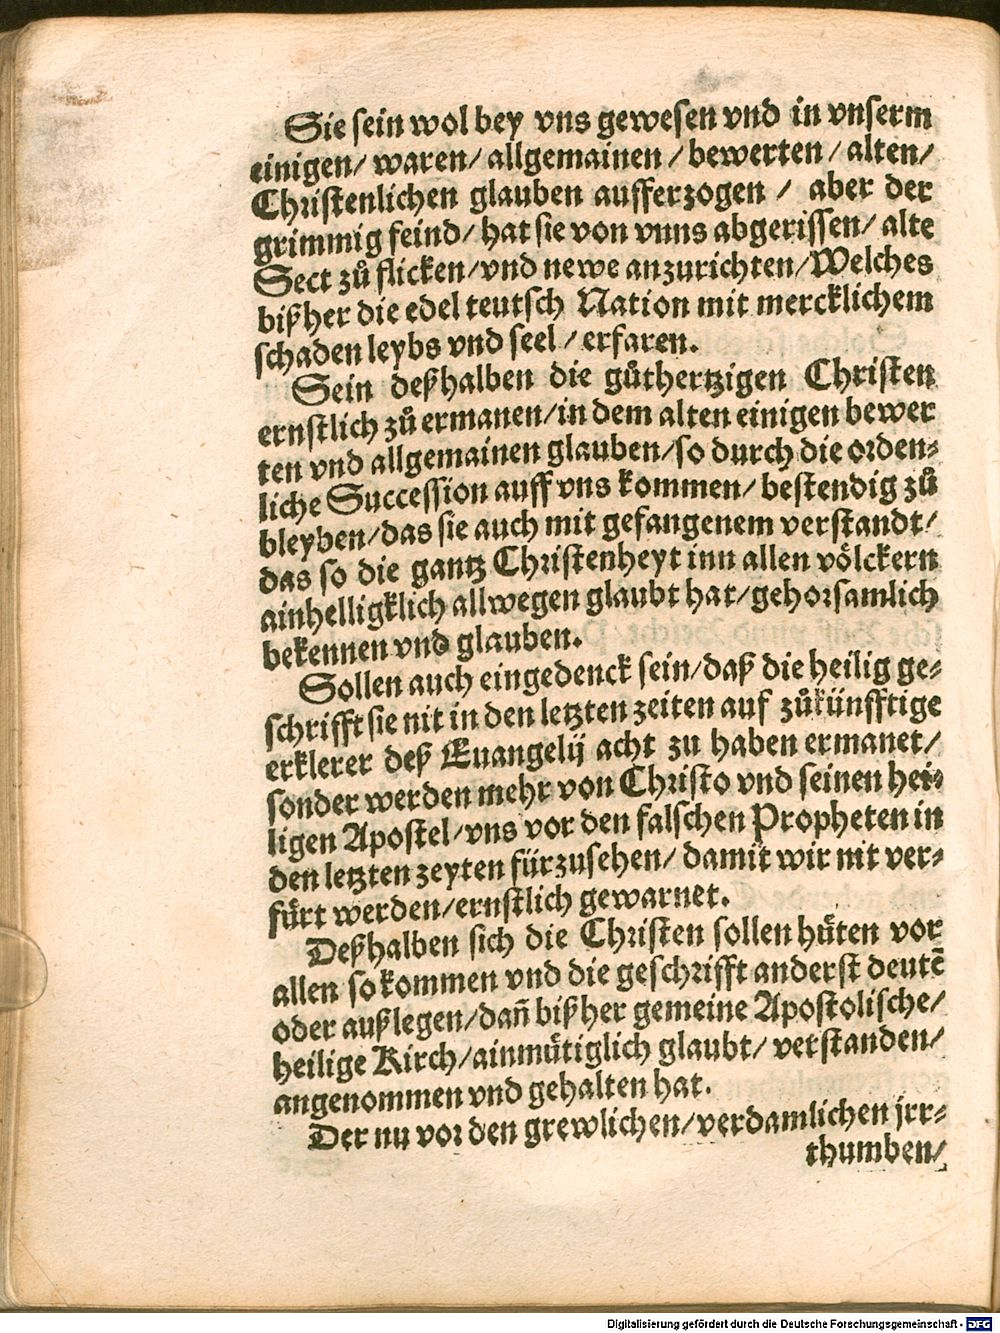 Sie sein wol bey vns gewesen vnd in vnserm
einigen/ waren/ allgemainen / bewerten / alten/
Christenlichen glauben aufferzogen / aber der
grimmig feind/ hat sie von vnns abgerissen/ alte
Sect zů flicken/vnd newe anzurichten/Welches
bißher die edel teutsch Nation mit mercklichem
schaden leybs vnd seel / erfaren.
Sein deßhalben die gůthertzigen Christen
ernstlich zů ermanen/in dem alten einigen bewer
ten vnd allgemainen glauben/so durch die orden⸗
liche Succession auff vns kommen/ bestendig zů
bleyben/das sie auch mit gefangenem verstandt/
das so die gantz Christenheyt inn allen völckern
ainhelligklich allwegen glaubt hat/gehorsamlich
bekennen vnd glauben.
Sollen auch eingedenck sein/daß die heilig ge⸗
schrifft sie nit in den letzten zeiten auf zůkünfftige
erklerer deß Euangelij acht zu haben ermanet/
sonder werden mehr von Christo vnd seinen hei⸗
ligen Apostel/vns vor den falschen Propheten in
den letzten zeyten fürzusehen/ damit wir nit ver⸗
fürt werden/ernstlich gewarnet.
Deßhalben sich die Christen sollen hüten vor
allen so kommen vnd die geschrifft anderst deutē
oder außlegen/dañ bißher gemeine Apostolische/
heilige Kirch/ainmütiglich glaubt/ verstanden/
angenommen vnd gehalten hat.
Der nu vor den grewlichen/verdamlichen jrr⸗
thumben/
Digitalisierung gefördert durch die Deutsche Forschungsgemeinschaft - DFG